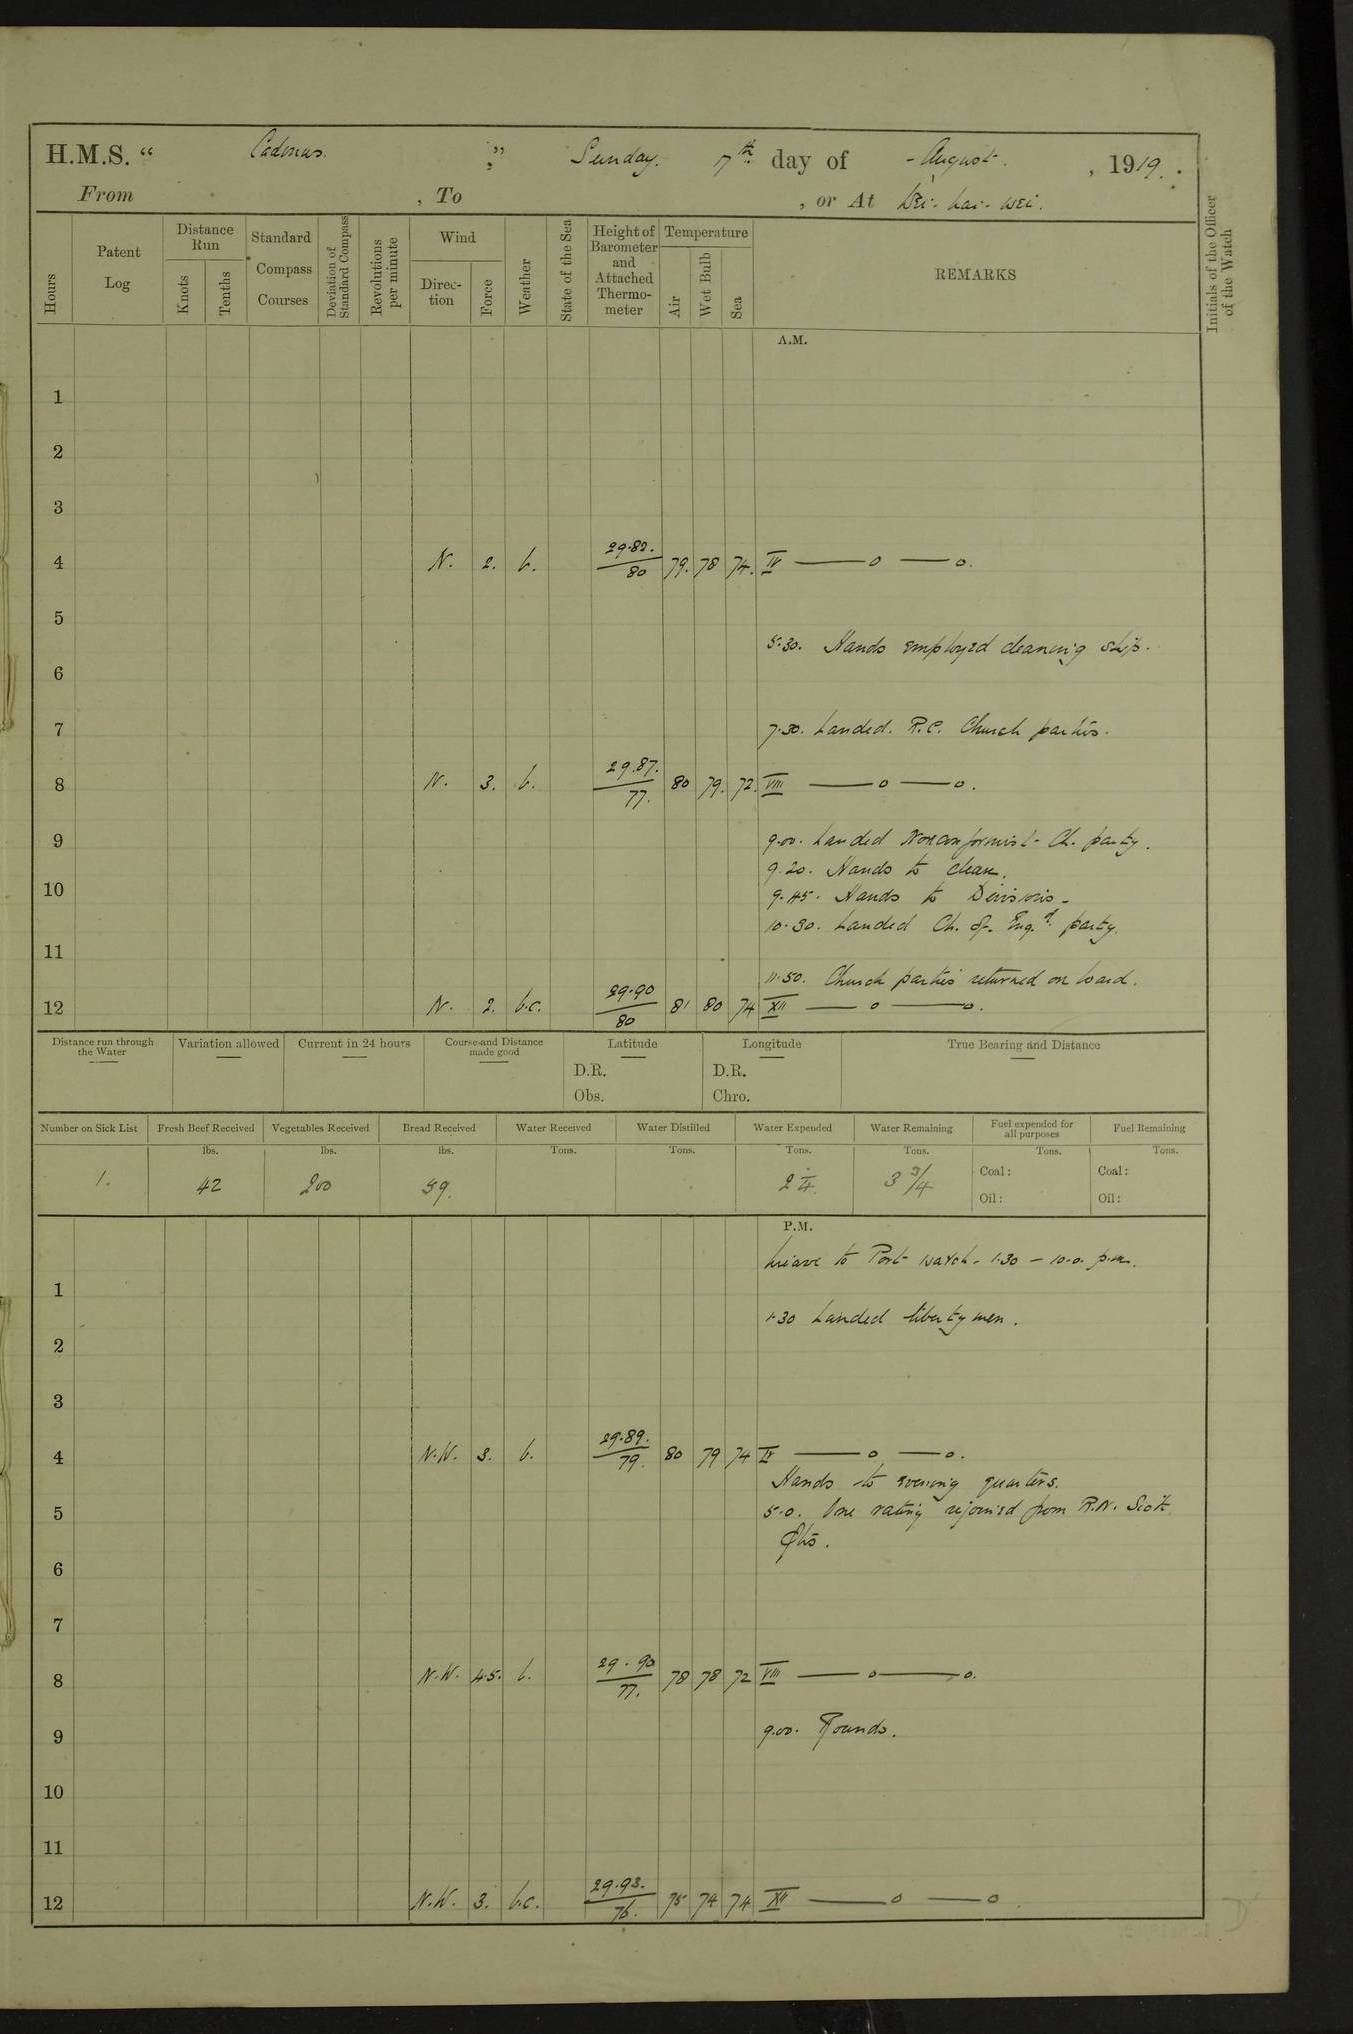 H.M.S. “ Cadmus. ,” Sunday. 7th day of - August. , 1919.
From , To , or At Wei-hai-wei.
Hours Patent Log Distance Run Knots Tenths Standard Compass Courses Deviation of Standard Compass Revolutions per minute Wind Direc-tion Force Weather State of the Sea Height of Barometer and Attached Thermo-meter Temperature Air Wet Bulb Sea REMARKS Initials of the Officer of the Watch
A.M.
1
2
3
4 N. 2. b. 29.82. 80 79. 78 74. IV —— o —— o.
5
5.30. Hands employed cleaning ship.
6
7 7.30. Landed. R.C. Church parties.
8 N. 3. b. 29.87. 77. 80 79. 72. VIII —— o —— o.
9 9.00. Landed Nonconformist Ch. party.
9.20. Hands to clean.
10 9.45. Hands to Divisions.
10.30. Landed Ch. of. Eng.d party.
11
11.50. Church parties returned on board.
12 N. 2. b.c. 29.90 80 81 80 74 XII —— o —— o.
Distance run through the Water Variation allowed Current in 24 hours Course and Distance made good Latitude Longitude True Bearing and Distance
D.R. D.R.
Obs. Chro.
Number on Sick List Fresh Beef Received Vegetables Received Bread Received Water Received Water Distilled Water Expended Water Remaining Fuel expended for all purposes Fuel Remaining
lbs. lbs. lbs. Tons. Tons. Tons. Tons. Tons. Tons.
1. 42 200 59. 2 1/4 3 3/4 Coal: Coal:
Oil: Oil:
P.M.
Leave to Port watch - 1.30 - 10.0. p.m.
1
1.30 Landed liberty men.
2
3
4 N.W. 3. b. 29.89. 79. 80 79 74 IV —— o —— o.
Hands to evening quarters.
5 5.0. One rating rejoined from R.N. Sick
Qtrs.
6
7
8 N.W. 4.5. b. 29.90 77. 78 78 72 VIII —— o —— o.
9 9.00. Rounds.
10
11
12 N.W. 3. b.c. 29.93. 76. 75 74 74 XII —— o —— o